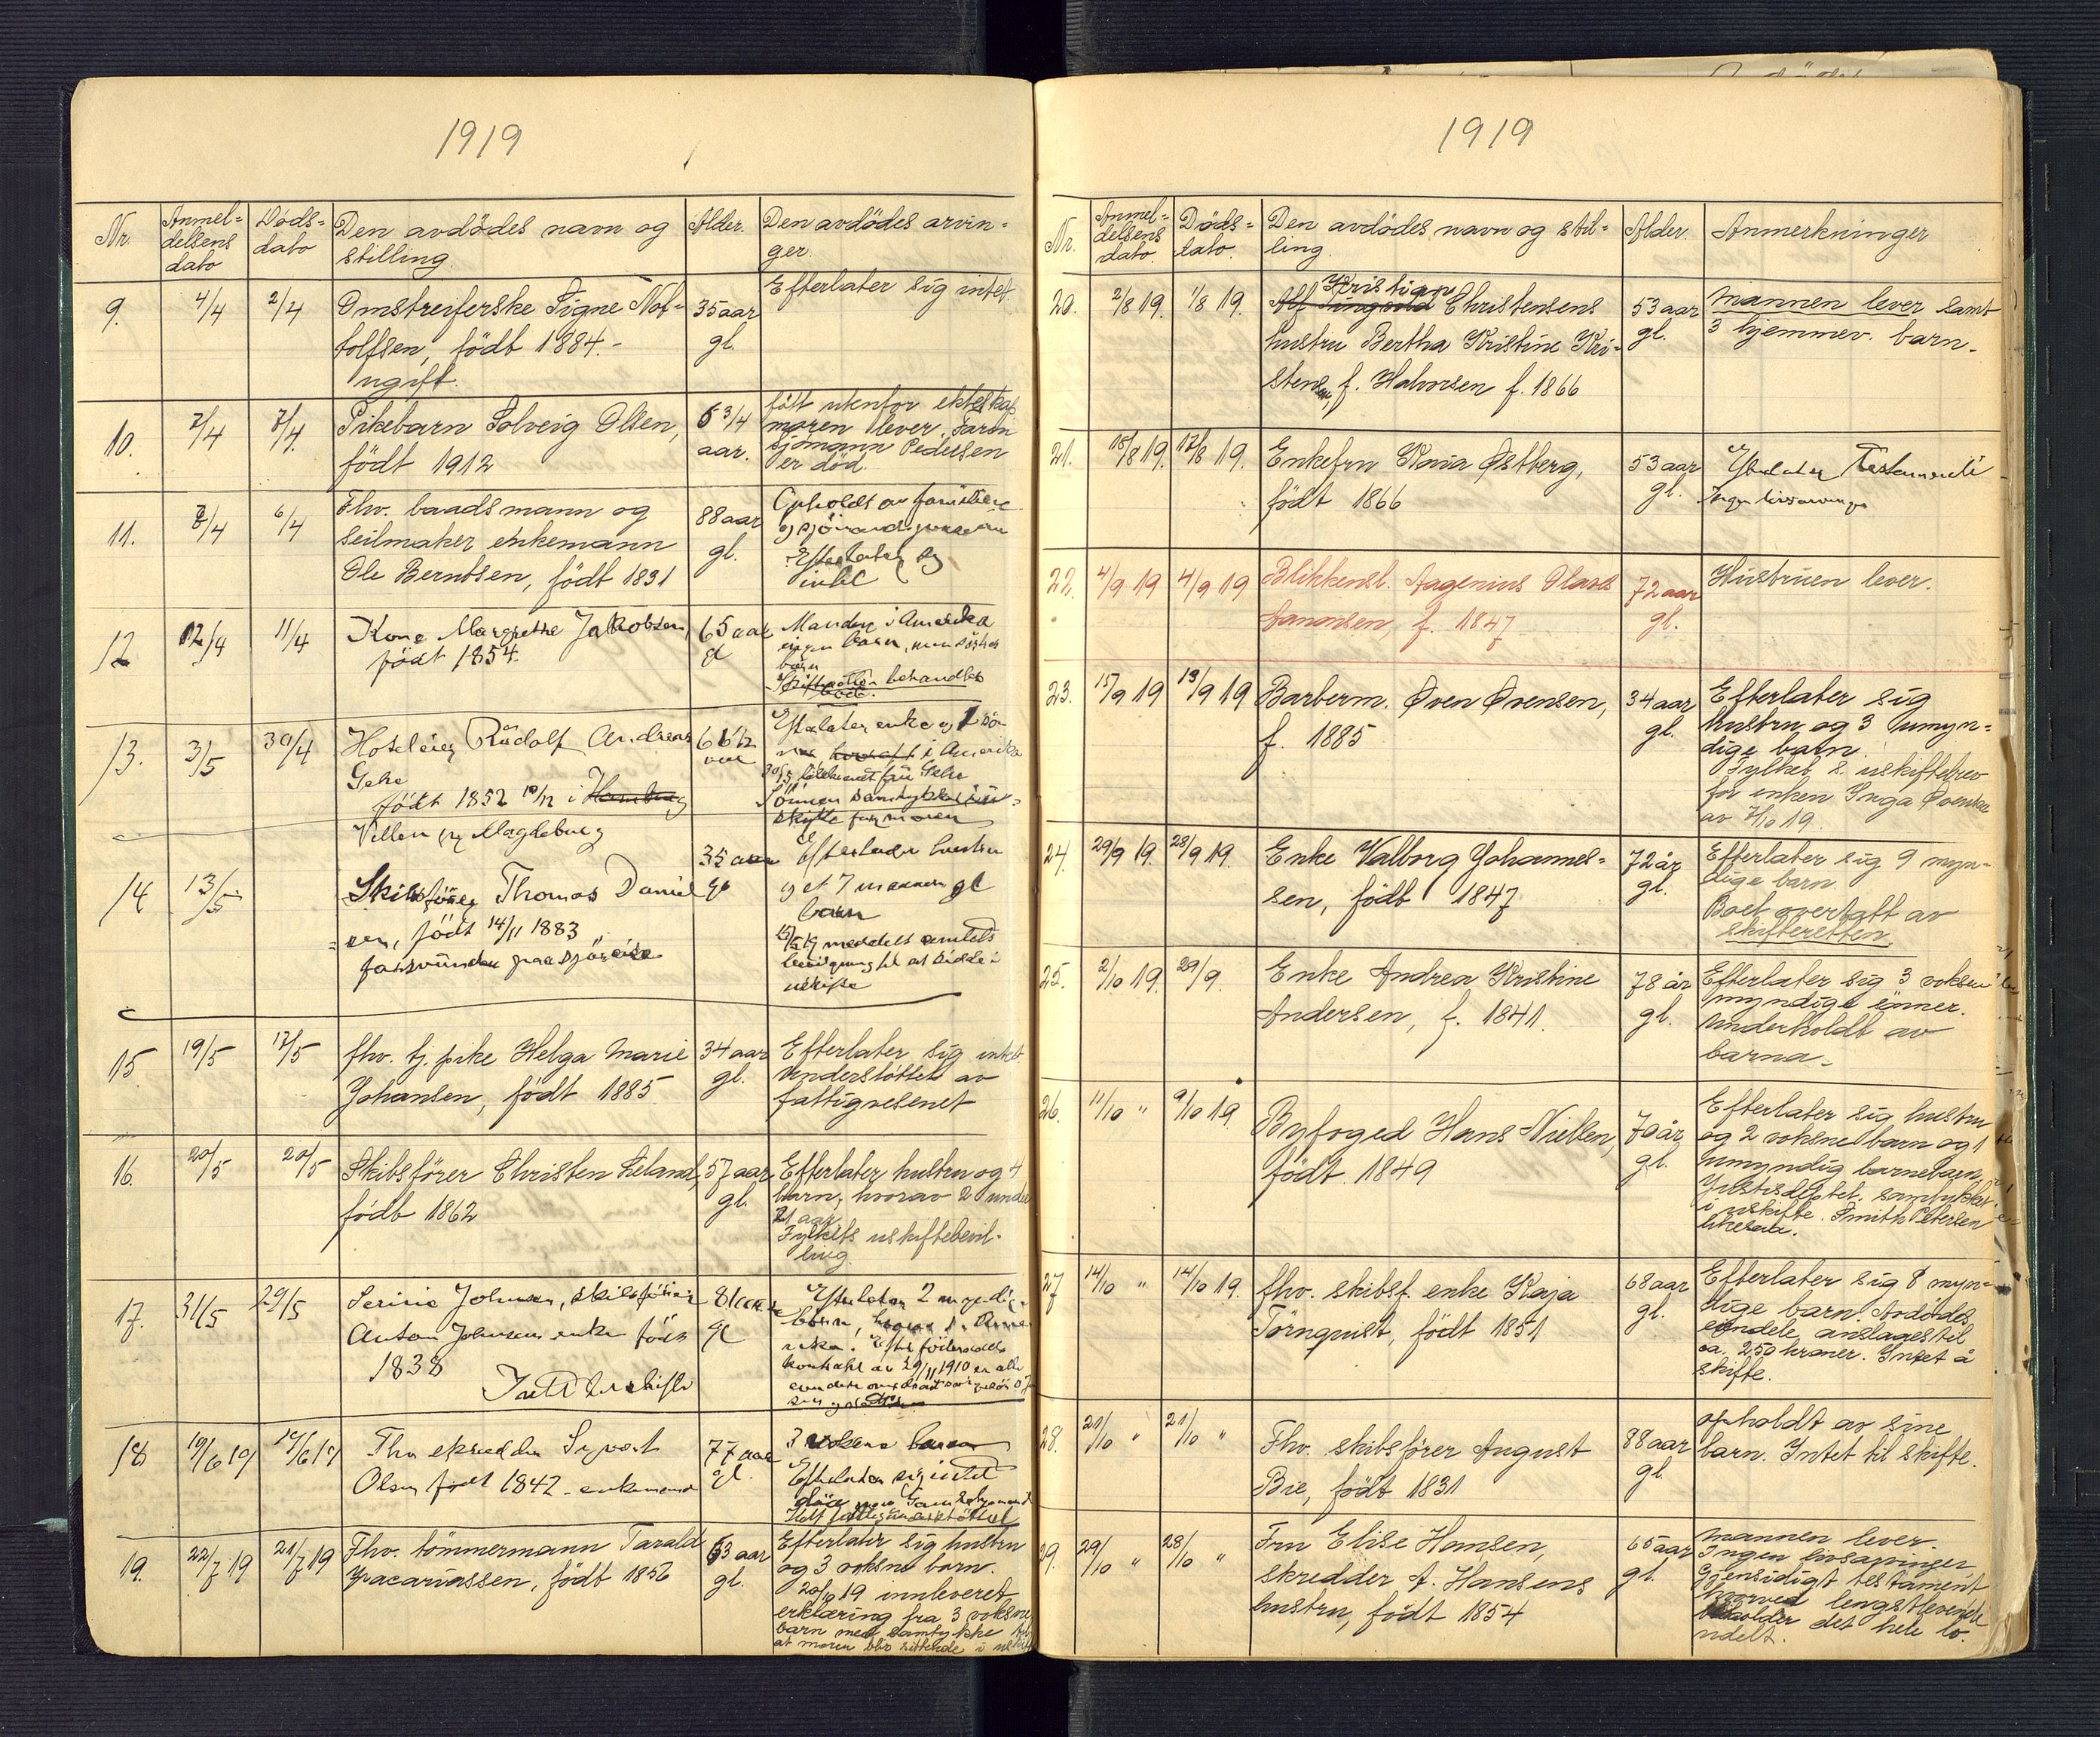 1919
Nr. Anmel= Døds= Den avdødes navn og Alder. Den avdødes arvin=
delsens dato stilling. ger.
dato
9. 4/4 2/4 Omstreiferske Signe Not= 35 aar Efterlater sig intet.
tolfsen, født 1884.- gl.
ugift.
10. 7/4 7/4 Pikebarn Solveig Olsen, 6 3/4 født utenfor ekteskap
født 1912 aar. moren lever. Faren
sjømann Pedersen
er død.
11. 8/4 6/4 Fhv. baadsmann og 88 aar Opholdt av familiene
seilmaker enkemann gl. og
Ole Berntsen, født 1831 Efterlater sig
intet
12 12/4 11/4 Kone Margrethe Jakobsen, 65 aar Manden i Amerika
født 1854. gl ingen barn, men søsken
barn
Skifteretten behandler
boet.
13. 3/5 30/4 Hoteleier Rudolf Andreas 66 1/2 Efterlater enke og 1 søn
Gehe aar i Amerika
født 1852 10/12 i Hamburg
Sønnen samtykker i u=
skifte for moren
Magdeburg
14 13/5 Skibsfører Thomas Daniel 35 aar Efterlater hustru
=sen, født 14/11 1883 gl og et 7 maaneder gl
forsvunden paa sjøreise barn
meddelt amtets
bevilgning til at sidde i
uskifte
15. 19/5 17/5 fhv. tj. pike Helga Marie 34 aar Efterlater sig intet
Johansen, født 1885 gl. Understøttet av
fattigvesenet
16. 20/5 20/5 Skibsfører Christen Leland, 57 aar Efterlater hustru og 4
født 1862 gl. barn, hvorav 2 under
21 aar.
Fylkets uskiftebevil-
ling.
17. 31/5 29/5 Serine Johnsen, skibsfører 81 aar Efterlater 2 myndige
Anton Johnsens enke født gl barn,
1838 Efter føderaads
Intet til skifte kontrakt av 29/11 1910 er alle
18 19/6 19 17/6 19 Fhv skredder Syvert 77 aar 3 voksne barn
Olsen født 1842 - enkemand gl. Efterlater sig intet
19. 22/7 19 21/7 19 Fhv. tømmermann Tarald 63 aar Efterlater sig hustru
Zacariassen, født 1856 gl. og 3 voksne barn.
20/10 19 innleveret
erklæring fra 3 voksne
barn med samtykke til
at moren blir sittende i uskifte
1919
Nr. Anmel= Døds= Den avdødes navn og stil= Alder. Anmerkninger
delsens dato. ling.
dato.
20. 2/8 19. 1/8 19. Kristian
Alf Tingvold Christensens 53 aar Mannen lever samt
hustru Bertha Kristine Kri= gl. 3 hjemmev. barn.
stensen, f. Halvorsen f. 1866
21. 18/8 19. 17/8 19. Enkefru Kaia Østberg, 53 aar Efterlater Testamente
født 1866 gl. Ingen livsarvinger
22. 4/9 19 4/9 19 Blikkensl. Aagenius Olaves 72 aar Hustruen lever.
Aanonsen, f. 1847 gl.
23. 15/9 19 13/9 19 Barberm. Øven Øvensen, 34 aar Efterlater sig
f. 1885 gl. hustru og 3 umyn=
dige barn.
Fylket s. uskiftebrev
for enken Inga Øvensen
av 7/10 19.
24. 29/9 19. 28/9 19. Enke Valborg Johannes= 72 år Efterlater sig 9 myn=
sen, født 1847 gl. dige barn.
Boet overtatt av
skifteretten.
25. 2/10 19. 29/9. Enke Andrea Kristine 78 år Efterlater sig 3 voksne
Andersen, f. 1841. gl. myndige sønner.
Underholdt av
barna.
26. 11/10 " 9/10 19. Byfoged Hans Nielsen, 70 år Efterlater sig hustru
født 1849 gl. og 2 voksne barn og 1
umyndig barnebarn
Justisdeptet. samtykke
i uskifte. Smith Petersen
likesaa.
27. 14/10 " 14/10 19. fhv. skibsf. enke Kaja 68 aar Efterlater sig 8 myn=
Törnquist, født 1851 gl. dige barn. Avdødes
eiendele anslages til
ca. 250 kroner. Intet å
skifte.
28. 21/10 " 21/10 " Fhv. skibsfører August 88 aar opholdt av sine
Bie, født 1831 gl. barn. Intet til skifte.
29. 29/10 " 28/10 " Fru Elise Hansen, 65 aar Mannen lever.
skredder A. Hansens gl. Ingen livsarvinger
hustru, født 1854 Gjensidigt testament
hvorved lengstlevende
beholder det hele bo.
udelt.